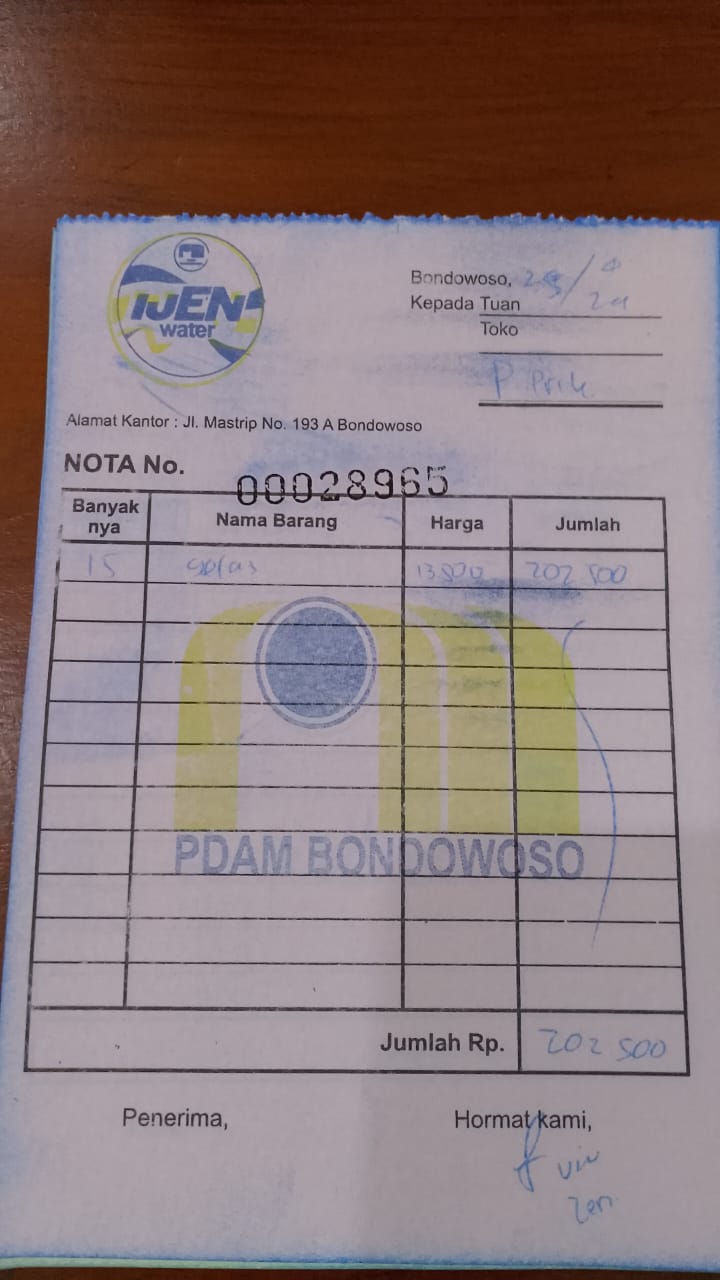 IJEN
water
Bondowoso,
Kepada Tuan
Toko
Alamat Kantor : Jl. Mastrip No. 193 A Bondowoso
NOTA No. 00028965
Banyak nya Nama Barang Harga Jumlah
15 gelas 13.500 202 500
PDAM BONDOWOSO
Jumlah Rp. 202 500
Penerima, Hormat kami,